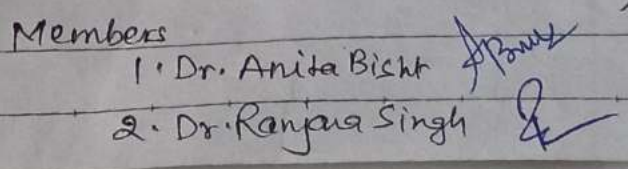 Members
1. Dr. Anita Bisht
2. Dr. Ranjana Singh